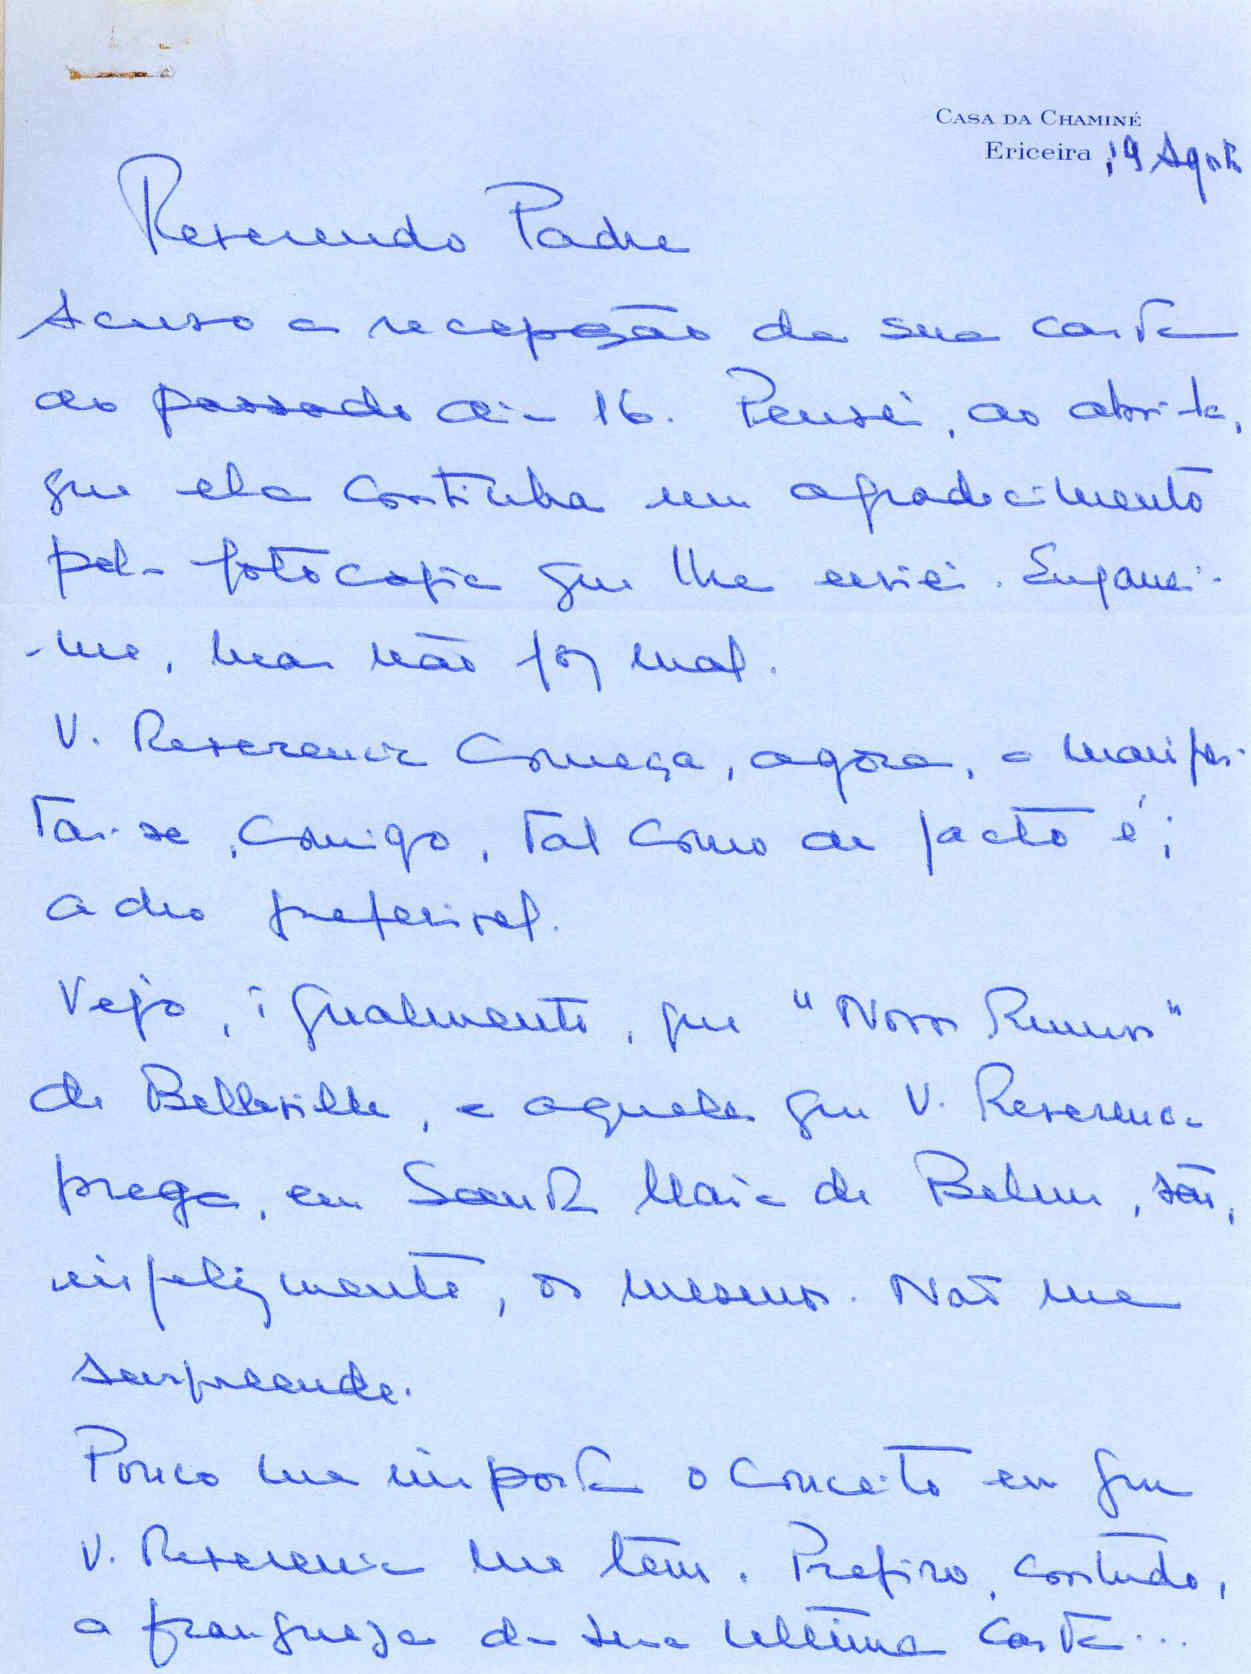 CASA DA CHAMINÉ
Ericeira 19 Agosto
Reverendo Padre
Acuso a recepção da sua carta
do passado dia 16. Pensei, ao abri-la,
que ela continha um agradecimento
pela fotocopia que lhe enviei. Enganei-
-me, mas não foi mal.
V. Reverencia começa, agora, a manifes-
tar-se, comigo, tal como de facto é;
acho preferivel.
Vejo, igualmente, que "Novos Rumos"
de Belleville, e aqueles que V. Reverencia
prega, em Santa Maria de Belem, são,
infelizmente, os mesmos. Não me
surpreende.
Pouco me importa o conceito em que
V. Reverencia me têm. Prefiro, contudo,
a franqueza da sua ultima carta...